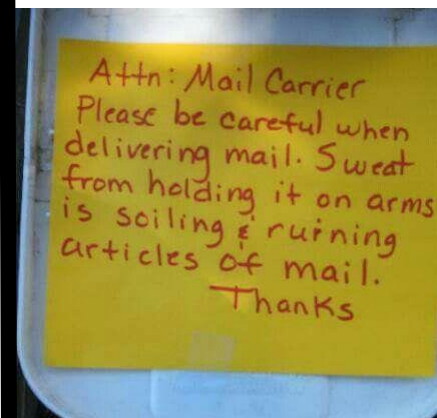 Attn: Mail Carrier
Please be careful when
delivering mail. Sweat
from holding it on arms
is soiling & ruining
articles of mail.
Thanks